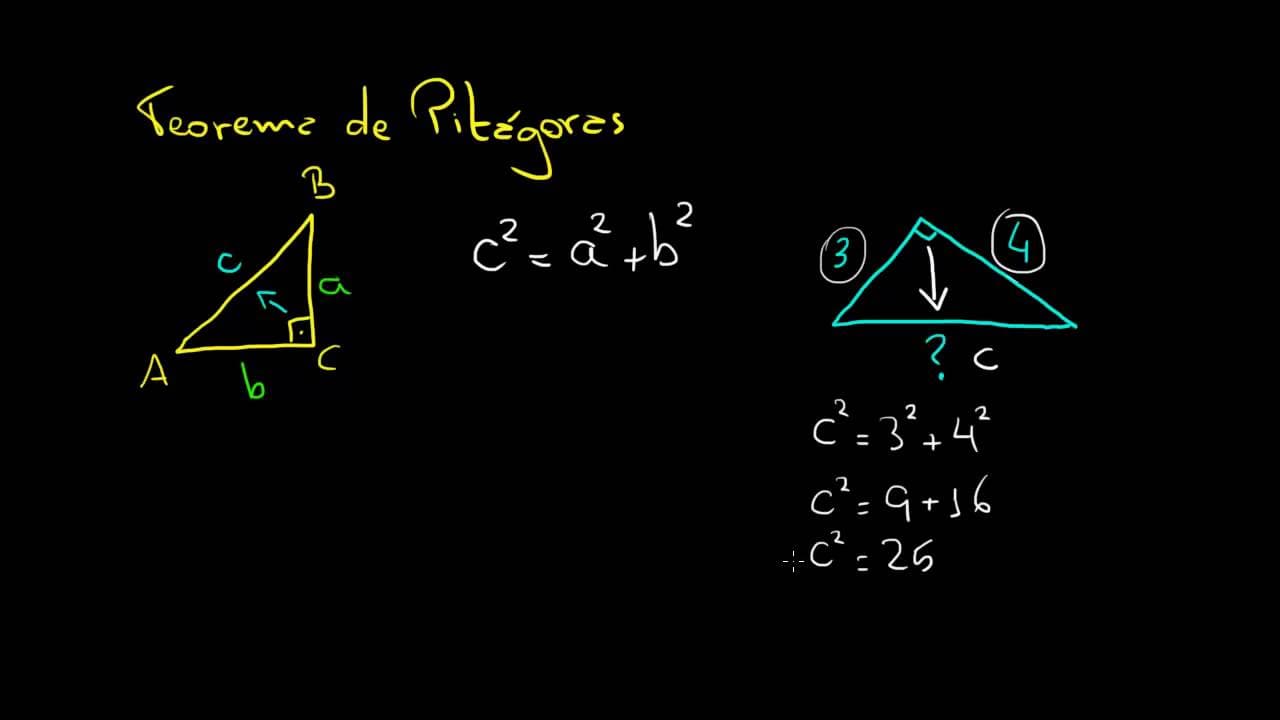 Teorema de Pitágoras
B
c
a
A
b
C
c² = a² + b²
3
4
? c
c² = 3² + 4²
c² = 9 + 16
c² = 25